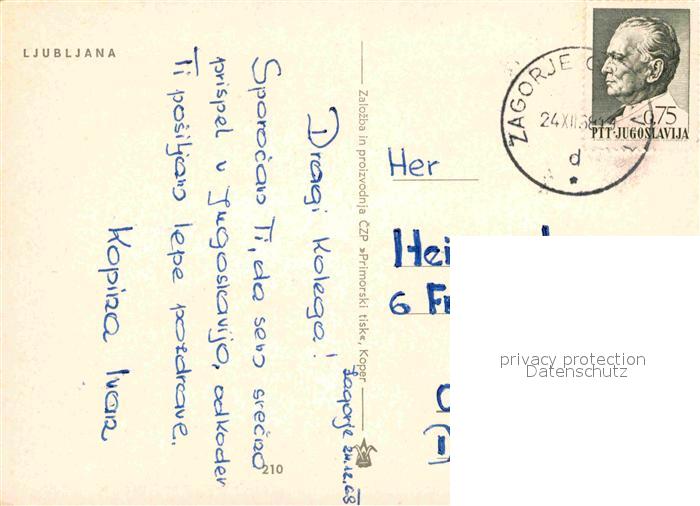 LJUBLJANA
Zagorje 24.12.68
Dragi Kolega!
Sporočam Ti, da sem srečno
prispel v Jugoslavijo, odkoder
Ti pošiljam lepe pozdrave.
Kopina Ivan
210
Založba in proizvodnja ČZP »Primorski tisk«, Koper
ZAGORJE
24.XII.68
d
0,75
PTT·JUGOSLAVIJA
Her
6
privacy protection
Datenschutz